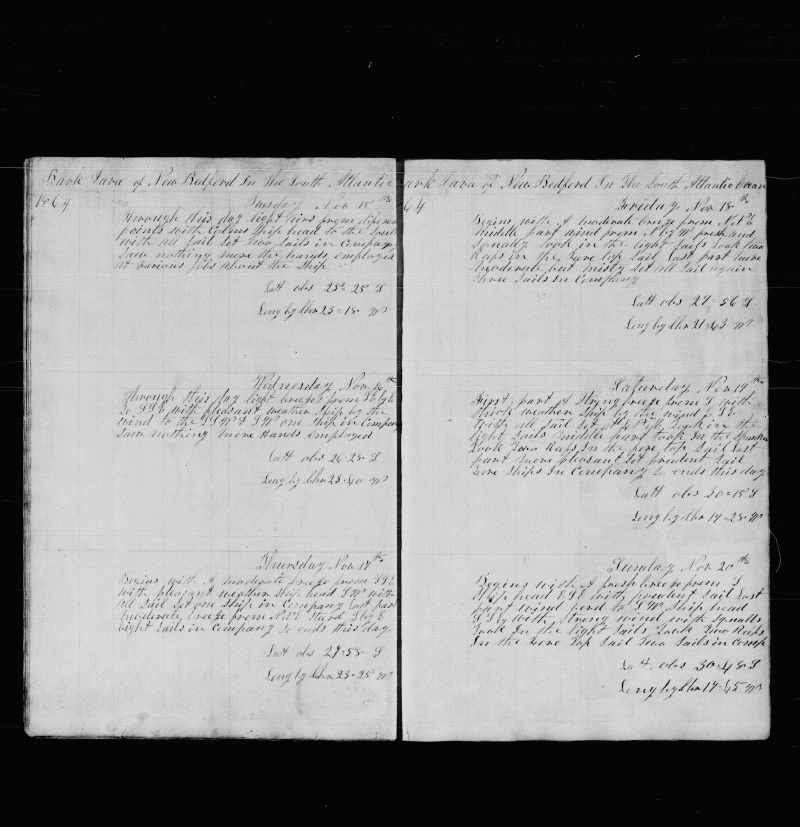 Bark Java of New Bedford In The South Atlantic
1864
Tuesday Nov 15th
Through this day light airs from different
points with Calms Ship head to the South
with all sail Set Two Sails in Company
Saw nothing more the hands employed
at various jobs about the Ship
Latt obs 25=25 S
Long by Chr 23=18 W
Wednesday Nov 16th
Through this day light breezes from SEbyE
to SSE with pleasant weather Ship by the
wind to the SSW & SW one Ship in Company
Saw nothing more Hands employed
Latt obs 26=28 S
Long by Chr 23=40 W
Thursday Nov 17th
Begins with A moderate breeze from SSE
with pleasant weather Ship head SW with
all Sail Set one Ship in Company Last part
moderate breeze from NNE Steerd SbyE
Eight Sails in Company So ends this day
Latt obs 27=53 S
Long by Chr 23=25 W
Bark Java of New Bedford In The South Atlantic Ocean
64
Friday Nov 18th
Begins with A moderate breeze from NNE
Middle part wind from NbyW fresh and
Squally took in the light Sails Took Two
Reefs in the Fore top Sail Last part more
moderate but misty Set all Sail again
Three Sails In Company
Latt obs 27=56 S
Long by Chr 21=43 W
Saturday Nov 19th
First part A Strong breeze from S with
thick weather Ship by the wind to SE
with all Sail Set At 4 PM Took in the
light Sails middle part took In the Spanker
Took Two Reefs In the Fore top Sail Last
part more pleasant Set prudent Sail
Five Ships In Company So ends this day
Latt obs 30=15 S
Long by Chr 19=28 W
Sunday Nov 20th
Begins with A fresh breeze from S
Ship head ESE with prudent Sail Last
part wind hend to SW Ship head
SSE with Strong wind with Squalls
Took In the light Sails Took Two Reefs
In the Fore Top Sail Two Sails in Comp
Latt obs 30=48 S
Long by Chr 17=45 W